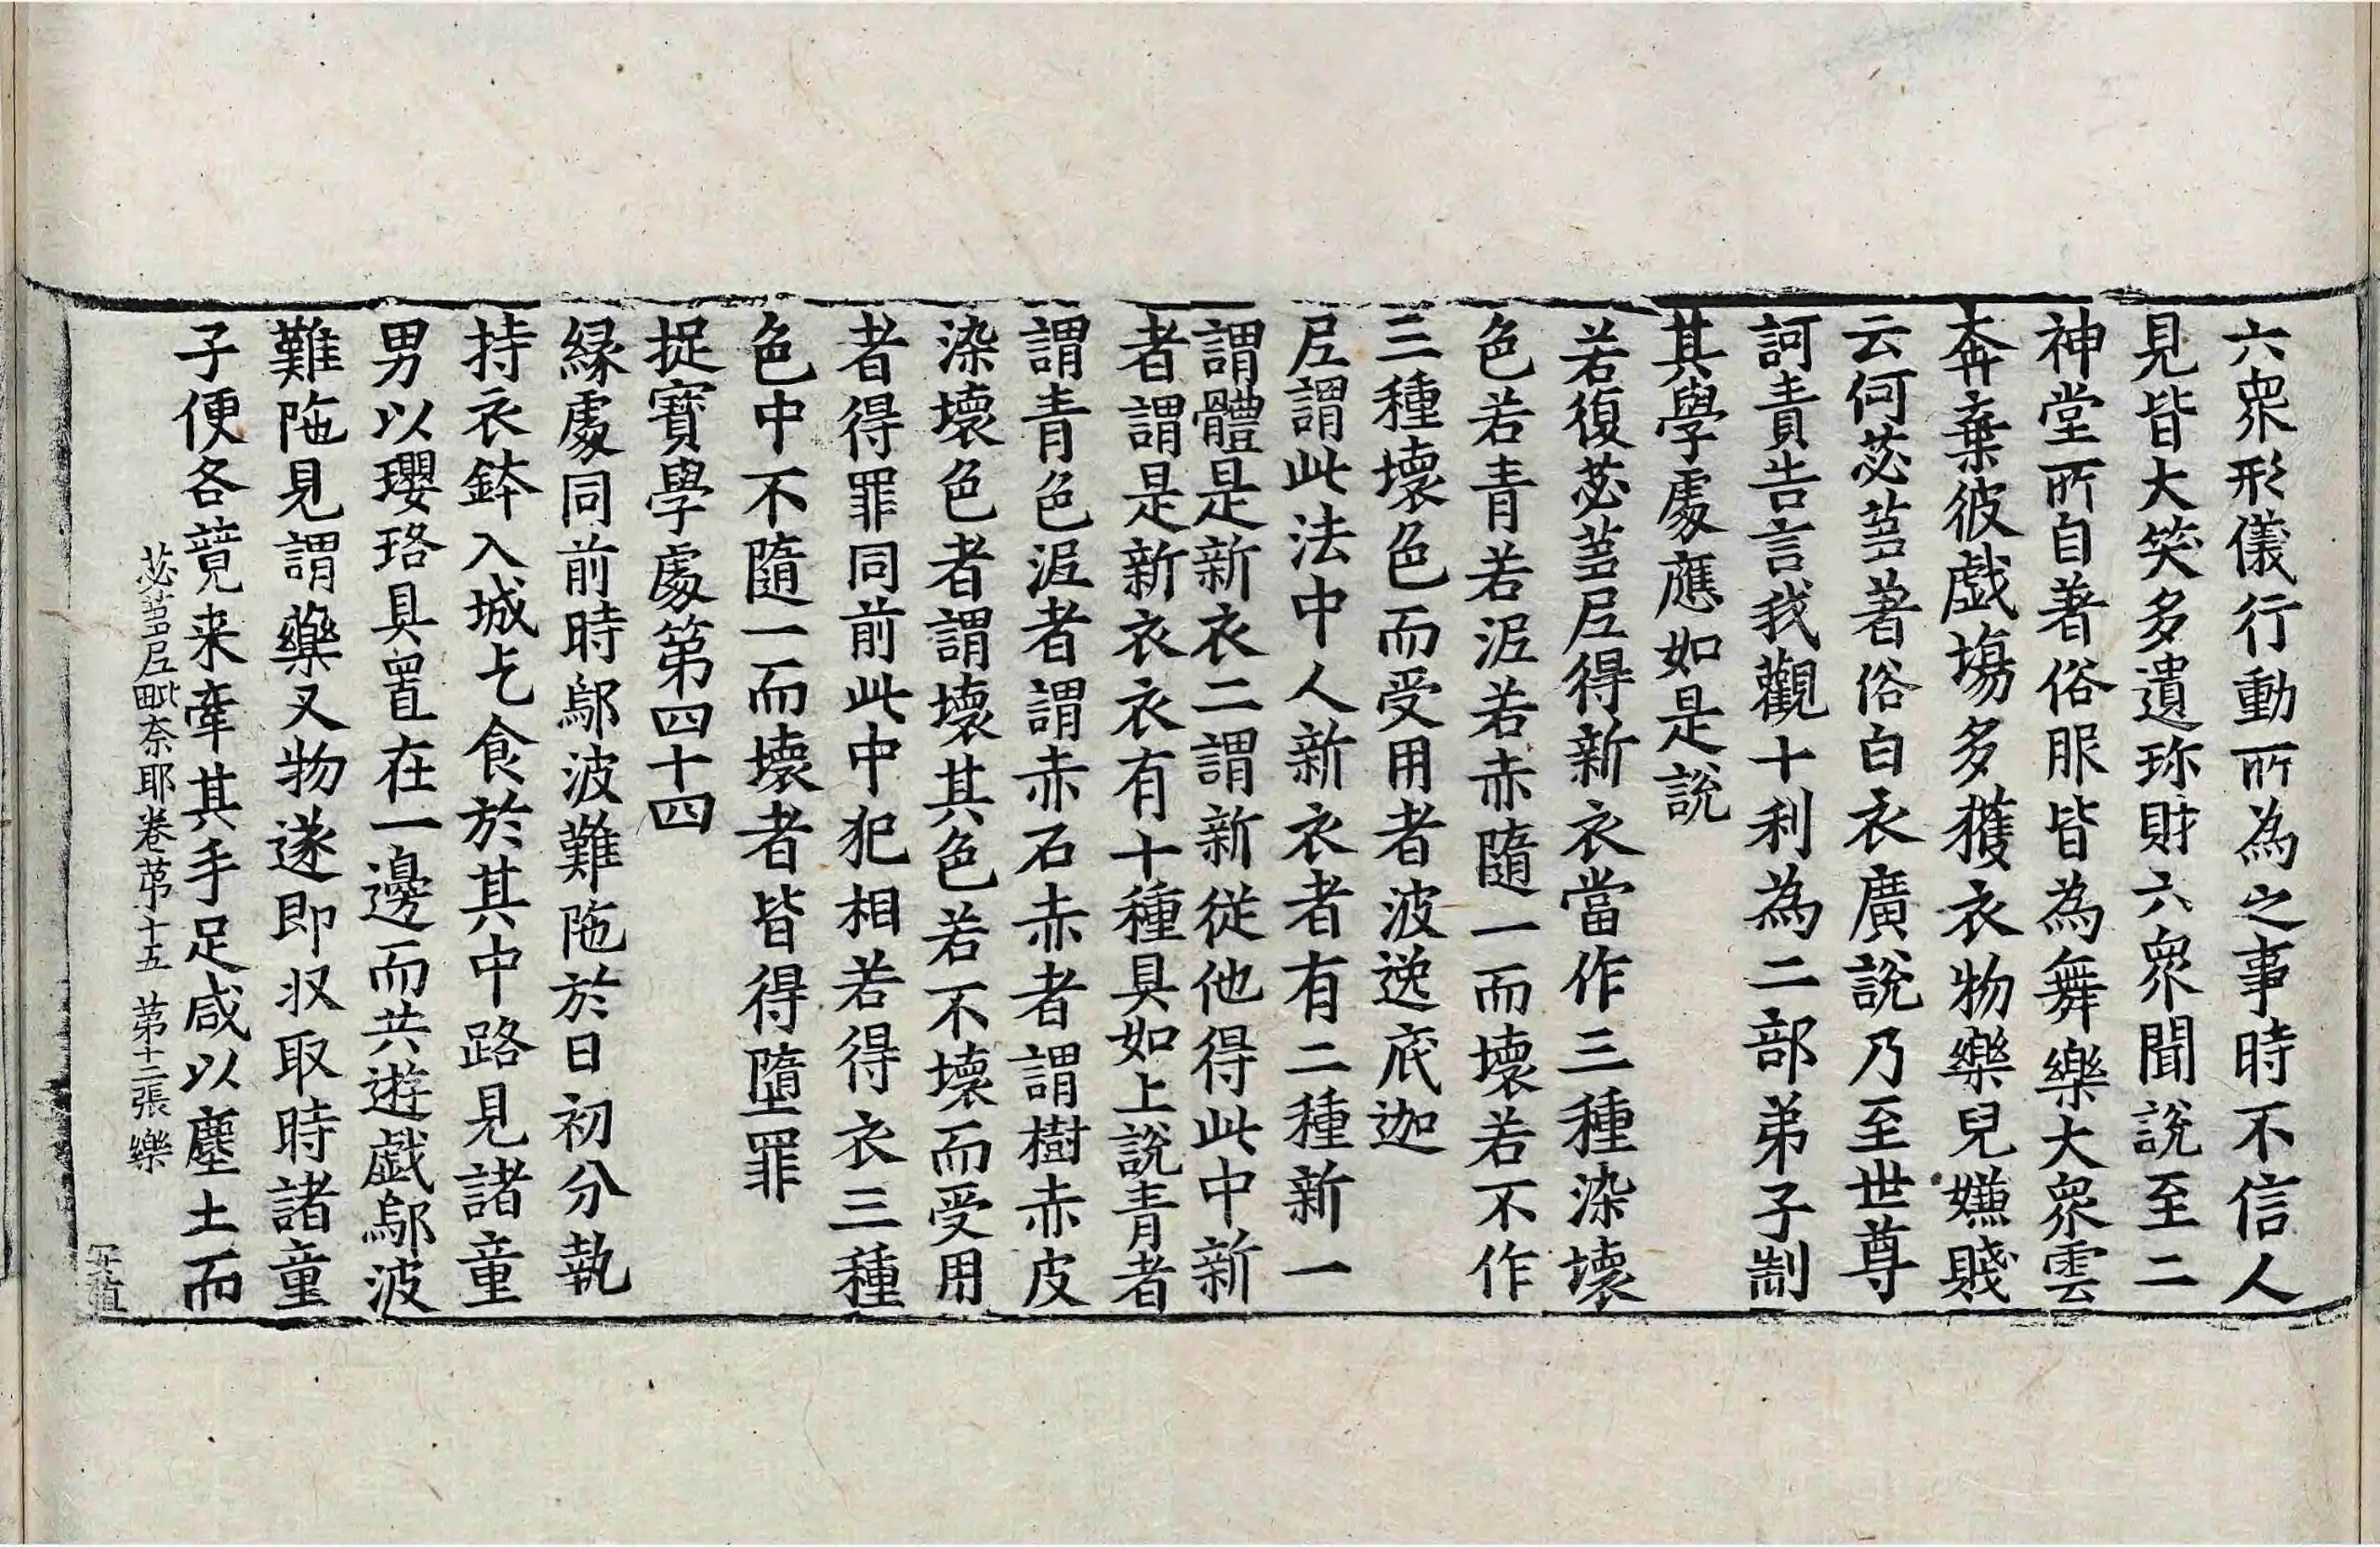 六衆形儀行動所為之事時不信人
見皆大笑多遺珎財六衆聞說至二
神堂所自著俗服皆為舞樂大衆雲
奔棄彼戯塲多獲衣物樂兒嫌賤
云何苾芻著俗白衣廣說乃至世尊
訶責告言我觀十利為二部弟子制
其學處應如是說
若復苾芻尼得新衣當作三種染壞
色若青若泥若赤隨一而壞若不作
三種壞色而受用者波逸底迦
尼謂此法中人新衣者有二種新一
謂體是新衣二謂新從他得此中新
者謂是新衣衣有十種具如上說青者
謂青色泥者謂赤石赤者謂樹赤皮
染壞色者謂壞其色若不壞而受用
者得罪同前此中犯相若得衣三種
色中不隨一而壞者皆得墮罪
捉寶學處第四十四
緣處同前時鄔波難陁於日初分執
持衣鉢入城乞食於其中路見諸童
男以瓔珞具置在一邊而共遊戯鄔波
難陁見謂藥叉物遂即収取時諸童
子便各競来牽其手足咸以塵土而
苾芻尼毗奈耶卷苐十五 第十二張 樂